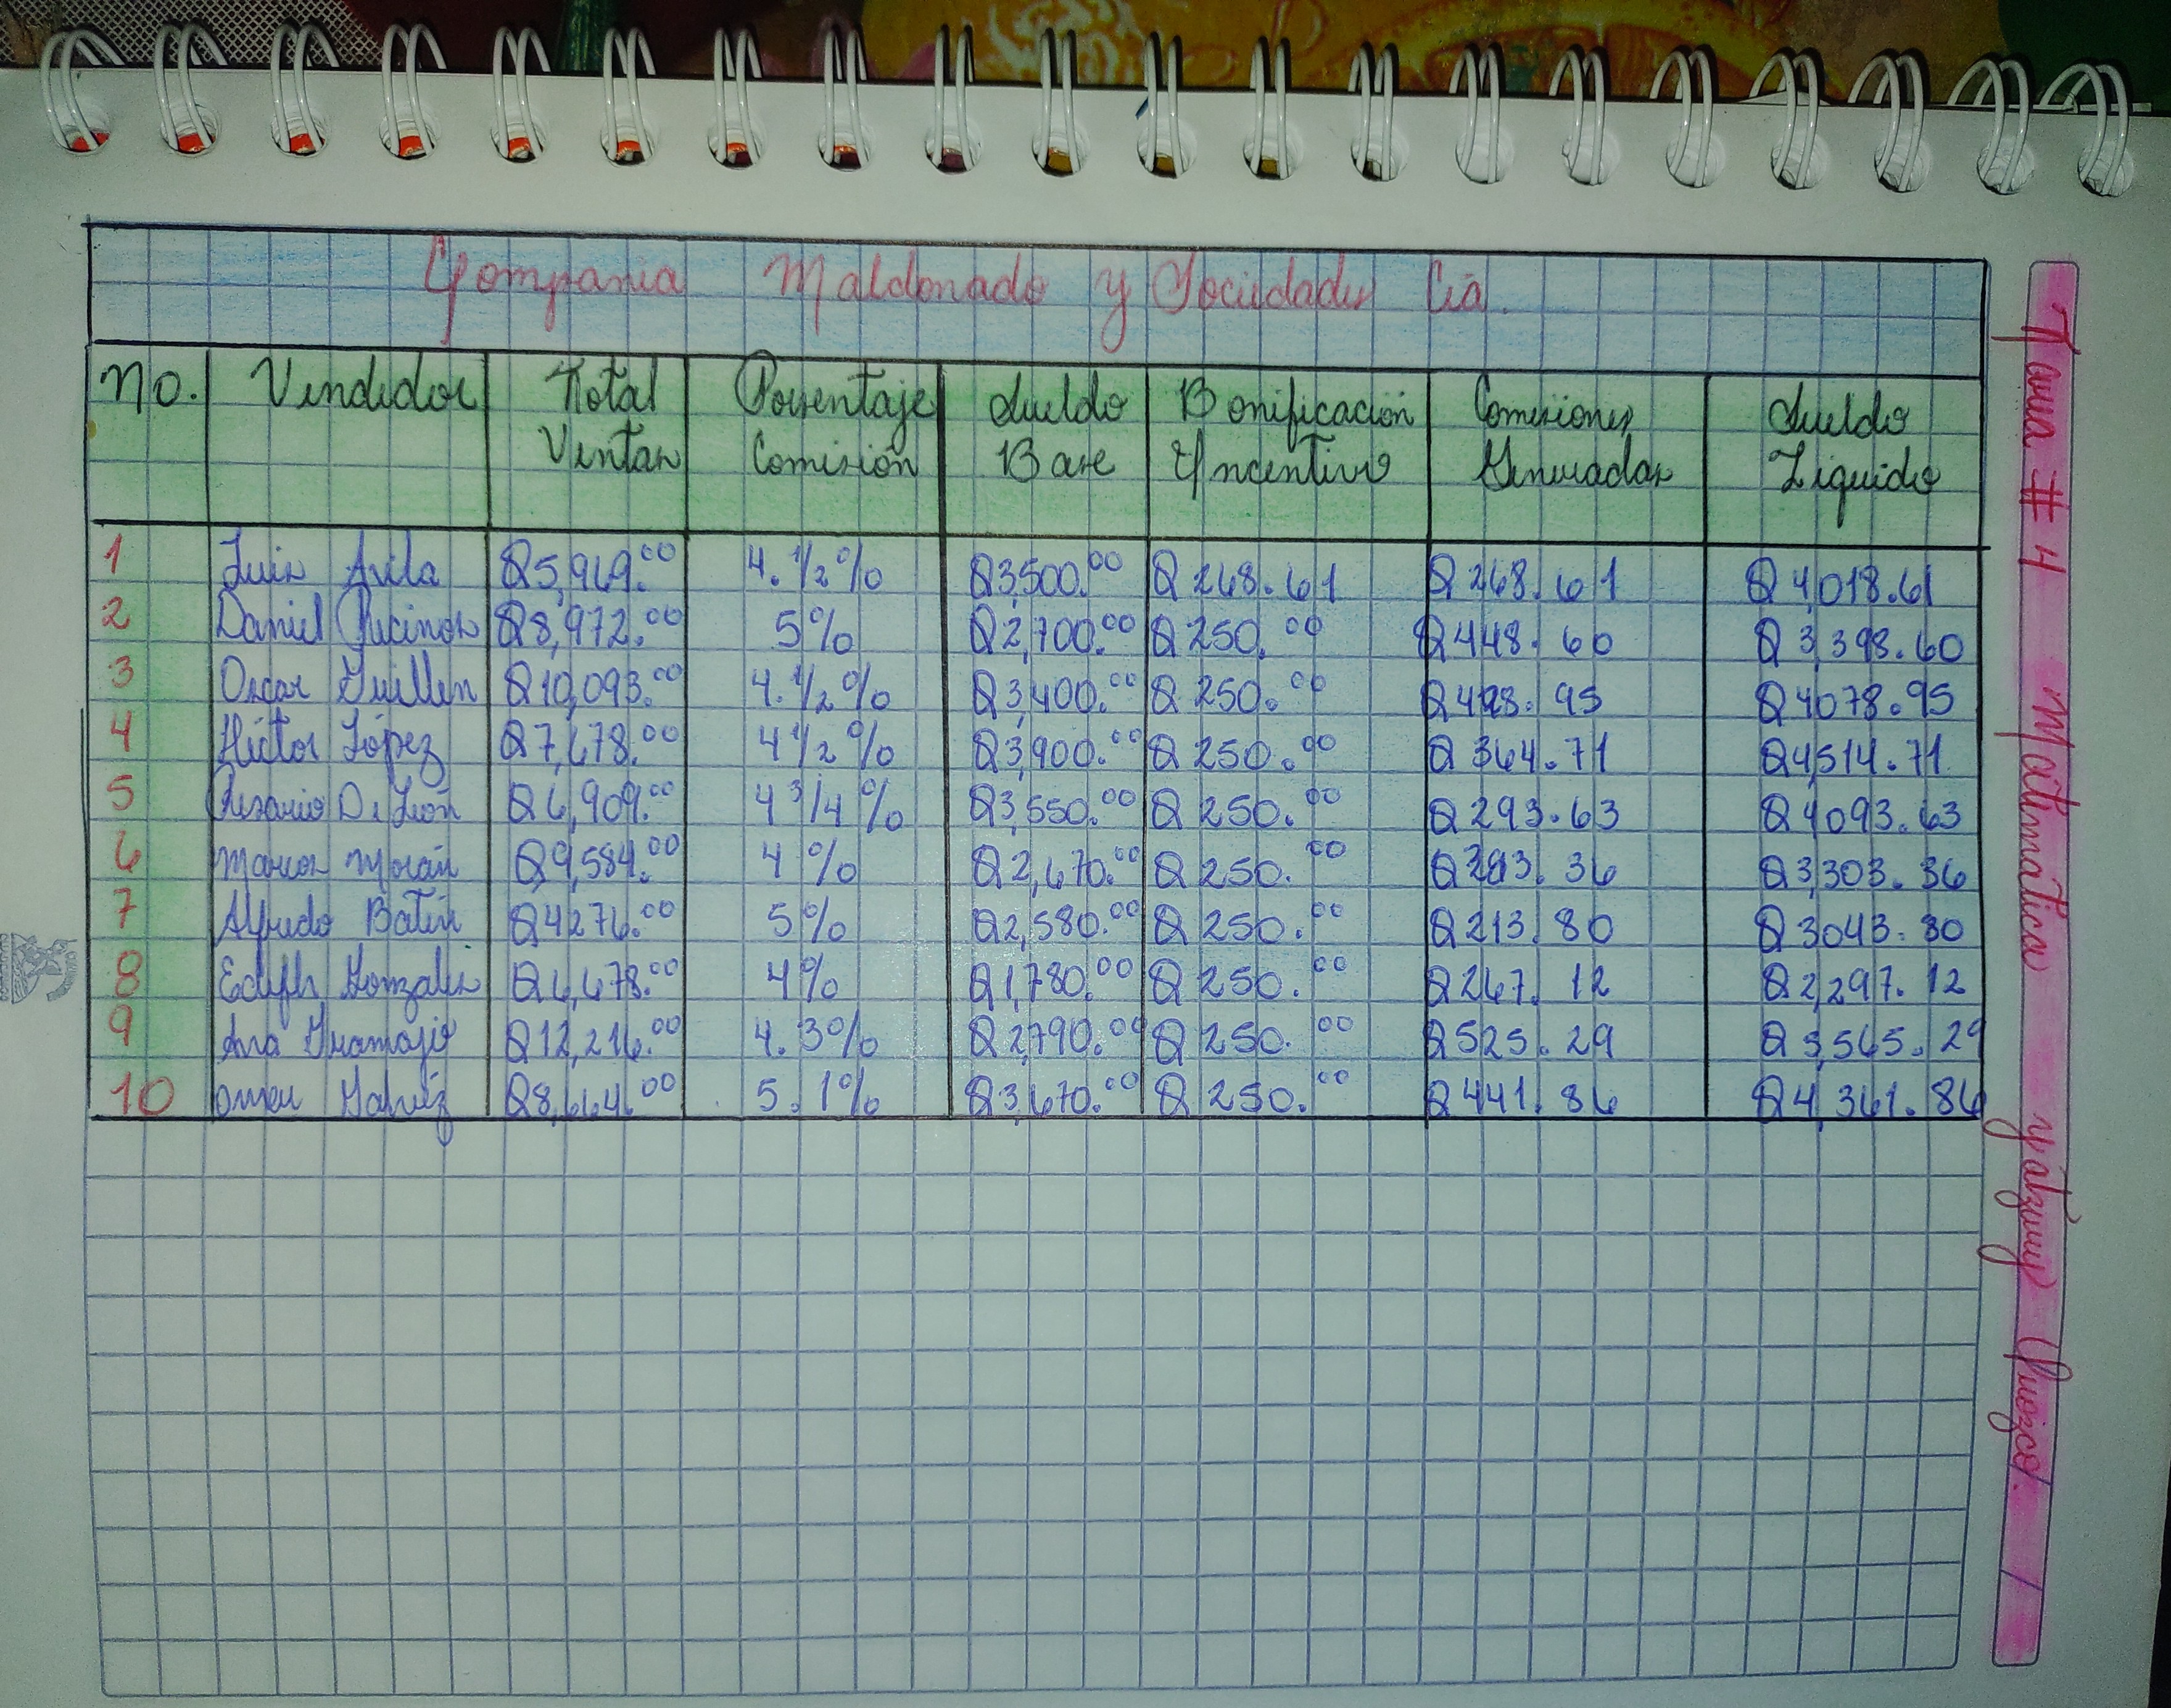 Compania Maldonado y Sociedades Cia.
No. Vendedor Total Ventas Porcentaje Comisión Sueldo Base Bonificación Incentivo Comisiones Generadas Sueldo Liquido
1 Luis Avila Q5,969.00 4.1/2% Q3,500.00 Q268.61 Q268.61 Q4,018.61
2 Daniel Q8,972.00 5% Q2,700.00 Q250.00 Q448.60 Q3,398.60
3 Oscar Guillen Q10,093.00 4.1/2% Q3,400.00 Q250.00 Q428.95 Q4078.95
4 Héctor López Q7,678.00 4 1/2% Q3,900.00 Q250.00 Q364.71 Q4,514.71
5 Rosario De León Q6,909.00 4 3/4% Q3,550.00 Q250.00 Q293.63 Q4093.63
6 Marcos Morán Q9,584.00 4% Q2,670.00 Q250.00 Q383.36 Q3,303.36
7 Alfredo Batén Q4276.00 5% Q2,580.00 Q250.00 Q213.80 Q3043.80
8 Gonzales Q6,678.00 4% Q1,780.00 Q250.00 Q267.12 Q2,297.12
9 Ana Gramajo Q12,216.00 4.3% Q2,790.00 Q250.00 Q525.29 Q3,565.29
10 Q8,664.00 5.1% Q3,670.00 Q250.00 Q441.86 Q4,361.86
Tarea # 4 Matematica Orozco.